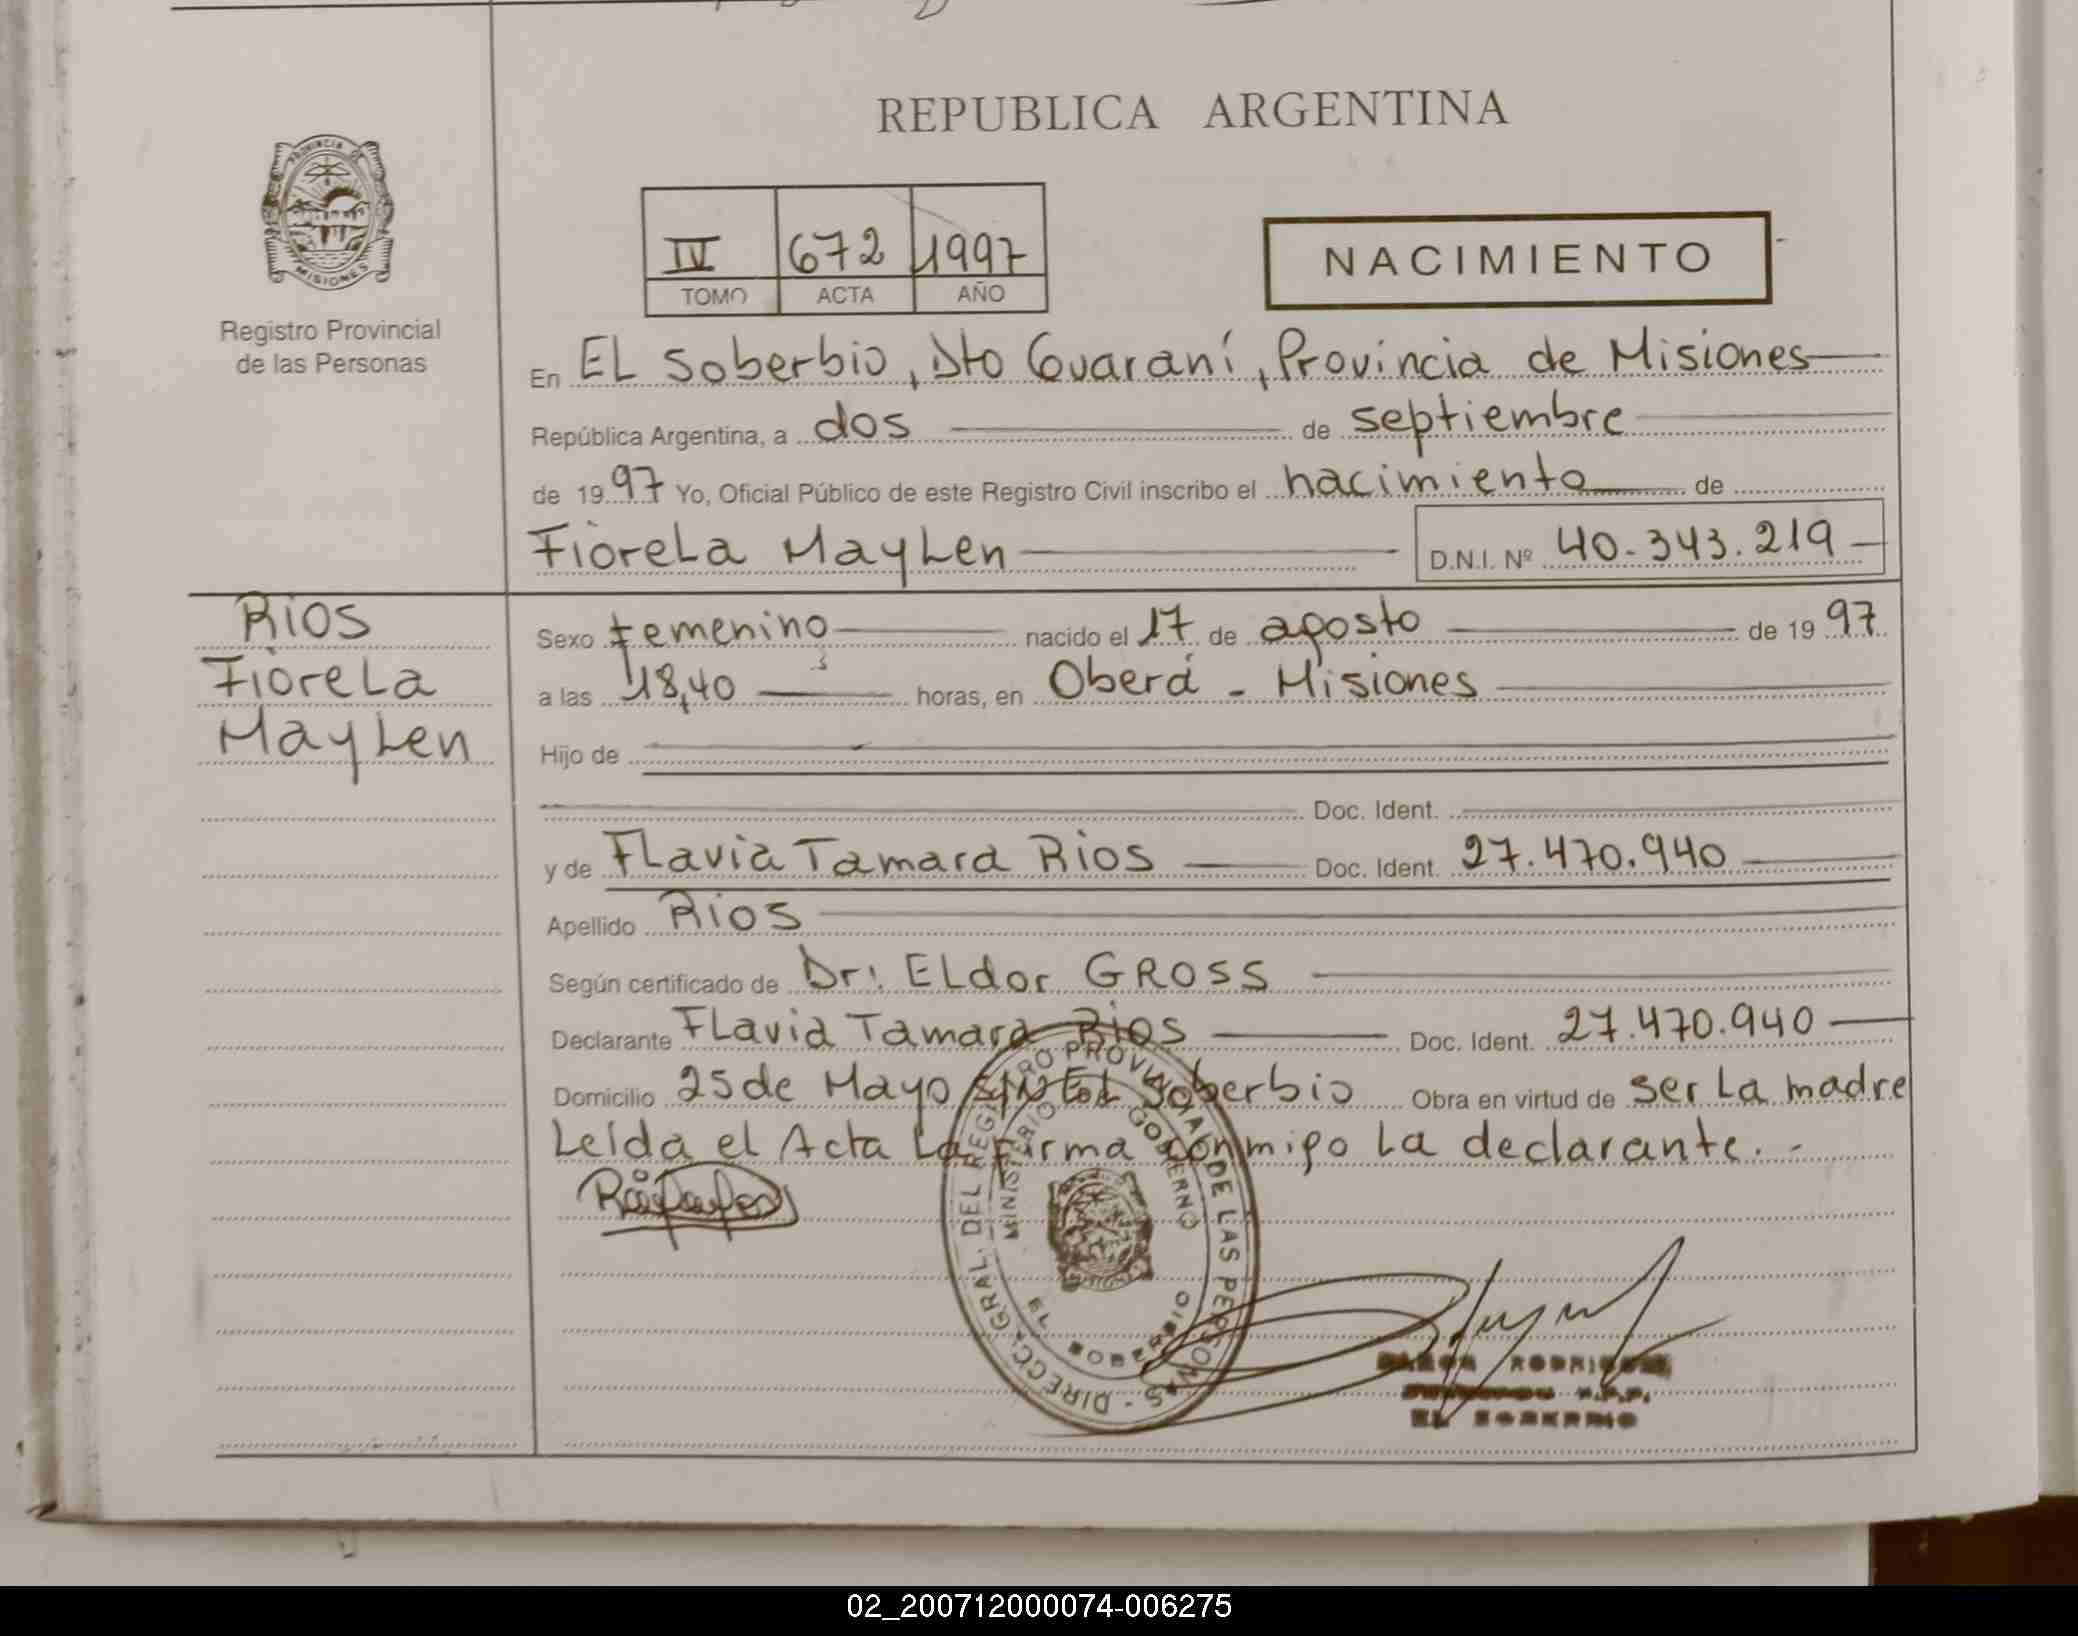 REPUBLICA ARGENTINA
PROVINCIA DE
MISIONES
Registro Provincial
de las Personas
IV 672 1997
TOMO ACTA AÑO
NACIMIENTO
En EL Soberbio, Dto Guaraní, Provincia de Misiones
República Argentina, a dos de septiembre
de 1997 Yo, Oficial Público de este Registro Civil inscribo el nacimiento de
FioreLa MayLen D.N.I. Nº 40.343.219
Rios
FioreLa
MayLen
Sexo femenino nacido el 17 de agosto de 1997
a las 18,40 horas, en Oberá - Misiones
Hijo de
Doc. Ident.
y de FLavia Tamara Rios Doc. Ident. 27.470.940
Apellido Rios
Según certificado de Dr: ELdor GROSS
Declarante FLavia Tamara Rios Doc. Ident. 27.470.940
Domicilio 25 de Mayo S/N EL Soberbio Obra en virtud de ser La madre
Leída el Acta La firma conmigo La declarante. -
DIRECC. GRAL. DEL REGISTRO PROVINCIAL DE LAS PERSONAS -
MINISTERIO GOBIERNO
RODRIGUEZ
EL SOBERBIO
02_200712000074-006275